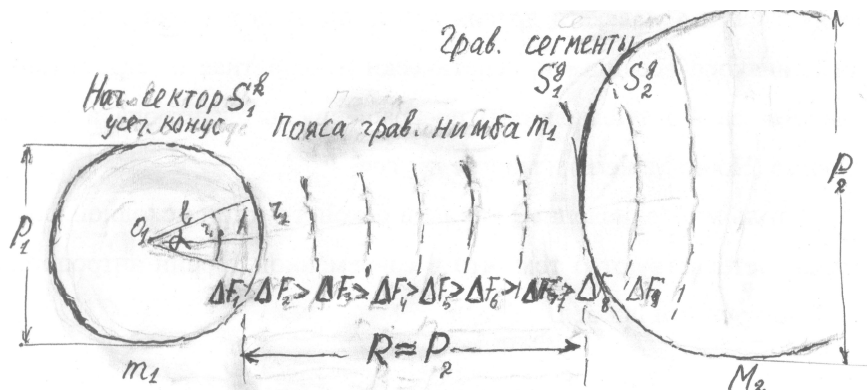 Грав. сегменты
S₁ᵍ S₂ᵍ
Нач. сектор S₁ᵏ
усеч. конус
Пояса грав. нимба m₁
P₁
O₁
α
r₁
r₂
h
P₂
ΔF₁ ΔF₂ > ΔF₃ > ΔF₄ > ΔF₅ > ΔF₆ > ΔF₇ > ΔF₈ ΔF₉
R ≈ P₂
m₁
M₂